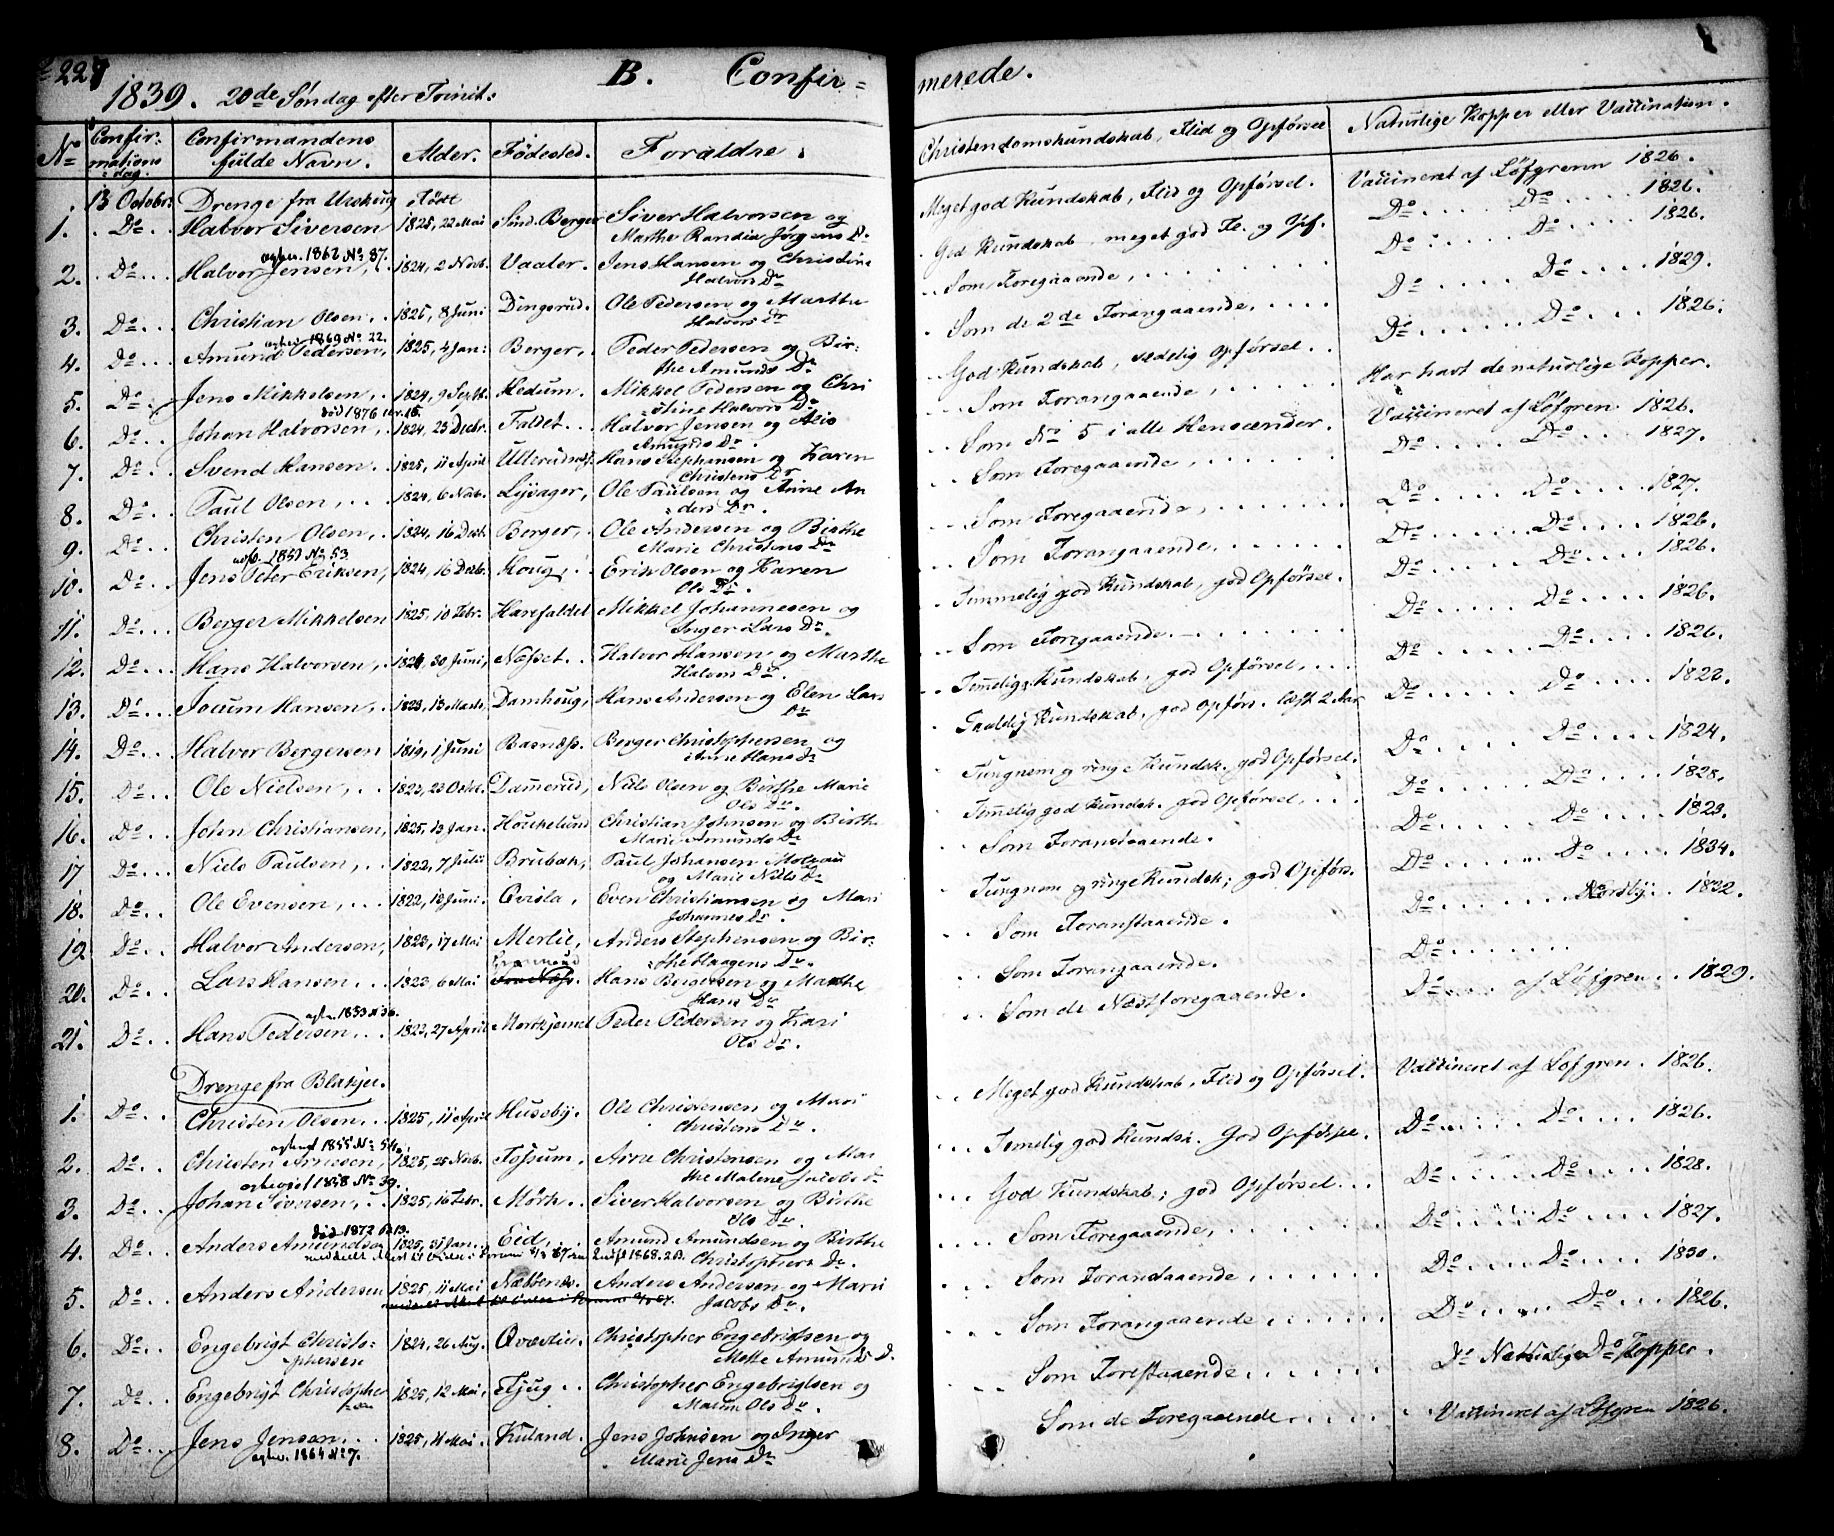 227
1839. 20de Søndag efter Trinit:
B. Confir=
merede.
No
Confir-
mations
dag.
Confirmandens
fulde Navn.
Alder.
Fødested.
Forældre.
Christendomskundskab, Flid og Opførsel
Naturlige Kopper eller Vaccination.
13 Octobr: Drenge fra Urskoug Födt
1. Do Halvor Siversen 1825, 22 Mai Sönd. Berger Siver Halvorsen og
Marthe Randia Jörgens Dr. Meget god Kundskab, Flid og Opførsel. Vaccineret af Löfgrenn 1826.
aghv. 1862 No 37.
2. Do Halvor Jensen, 1824, 2 Novb. Vaaler. Jens Hansen og Christine
Halvors Dr God Kundskab, meget god Fl. og Opf. Do Do 1826.
3. Do Christian Olsen 1825, 8 Juni Dingsrud. Ole Pedersen og Marthe
Halvors Dr Som Foregaaende, Do Do 1826.
1869 No 22.
4. Do Amund Pedersen, 1825, 4 Jan: Berger, Peder Pedersen og Bir-
the Amunds Dr Som de 2de Forangaaende. Do Do 1829.
5. Do Jens Mikkelsen, 1824, 9 Septb. Hedum. Mikkel Pedersen og Chri
stine Halvors Dr God Kundskab, sædelig Opførsel. Do Do 1826.
död 1876
6. Do Johan Halvorsen, 1824, 25 Decbr. Faldet. Halvor Jensen og
Dr. Som Forangaaende, Har havt de naturlige Kopper.
7. Do Svend Hansen 1825, 11 April Hans Stephansen og Karen
Christens Dr Som No 5 i alle Henseender. Vaccineret af Löfgren 1826.
8. Do Paul Olsen, 1824, 6 Novb. Lysager, Ole Paulsen og Anne An
ders Dr. Som Foregaaende, Do Do 1827.
9. Do Christen Olsen, 1824, 16 Decb. Berger, Ole Andersen og Birthe
Marie Christens Dr Som Foregaaende, Do Do 1827.
No 53
10. Do Jens Peter Eriksen, 1824, 16 Decb. Houg, Erik Olsen og Karen
Ols Dr. Som Forangaaende. Do Do 1826.
11. Do Berger Mikkelsen 1825, 10 Febr. Harefaldet Mikkel Johannesen og
Inger Lars Dr. Temmelig god Kundskab, god Opførsel. Do Do 1826.
12. Do Hans Halvorsen, 30 Juni, Næsset. Halvor Hansen og Marthe
Halvors Dr. Som Foregaaende. Do Do 1826.
13. Do Jocum Hansen, 1823, 13 Marts, Damhoug, Hans Andersen og Elen Lars
Dr Temelig Kundskab, god Opførsel, Do Do 1826.
14. Do Halvor Bergersen 1819, 1 Juni Basnæss. Berger Christophersen og
Anne Hans Dr Taalelig Kundskab, god Opførs. læst 2 Aar Do Do
15. Do Ole Nielsen, 1823, 23 Octbr. Damerud, Niels Olsen og Birthe Marie
Ols Dr. Tungnem og ringe Kundsk. god Opførsel. Do Do 1824.
16. Do John Christiansen, 1825, 13 Jan. Houkelund Christian Johnsen og Birthe
Marie Amunds Dr Temelig god Kundsk. god Opførsel, Do Do 1828.
17 Do Niels Paulsen, 1822, 7 Juli Brubak, Paul Johansen
og Marie Niels Dr Som Foranstaaende. Do Do 1823.
18. Do Ole Evensen, 1822, Juni. Qvisla, Even Christiansen og Mari
Johannes Dr. Tungnem og ringe Kundsk; god Opførs. Do Do 1834.
19. Do Halvor Andersen, 1823, 17 Mai Mertie, Anders Stephensen og Bir-
the Haagens Dr. Som Foranstaaende. Do 1832.
20. Do Lars Hansen 1823, 6 Mai Hans Bergersen og Marthe
Hans Dr. Som Forangaaende. Do
21. Do Hans Pedersen, 1823, 27 April Morkjerned Peder Pedersen og Kari
Ols Dr. Som de Næstforegaaende. Do af Löfgren 1829.
Drenge fra Blakjer.
1. Do Christen Olsen 1825, 11 April Huseby. Ole Christensen og Mari
Christens Dr. Meget god Kundskab, Flid og Opførsel. Vaccineret af Löfgren. 1826.
1855 No 54.
2. Do Christen Arnesen, 1825, 25 Novb. Fossum. Arne Christensen og Mar
the Malene Jacobs Dr Temelig god Kundsk. God Opførsel. Do Do 1826.
1858 No 39.
3. Do Johan Siversen, 1825, 16 Febr. Mörk. Siver Halvorsen og Birthe
Ols Dr. God Kundskab; god Opførsel Do Do 1828.
död 1872
4. Do Anders Amundsen 1825, 31 Jan. Eid, Amund Amundsen og Birthe
Christophers Dr. Som Foregaaende, Do Do 1827.
5. Do Anders Andersen 1825, 11 Mai Anders Andersen og Mari
Jacobs Dr. Som Forandaaende, Do Do 1830.
6. Do Engebrigt Christo-
phersen 1824, 26 Aug. Qvæstie. Christopher Engebrigtsen og
Mette Amunds Dr. Som Forangaaende Do Do 1826.
7. Do Engebrigt Christopher
sen 1825, 12 Mai, Fjug Christopher Engebrigtsen og
Maren Ols Dr. Som Forestaaende Do Kopper.
8. Do Jens Jensen 1825, 11 Mai. Kuland. Jens Johnsen og Inger
Marie Jens Dr Som de Foregaaende Vaccineret af Löfgren 1826.
aghv. 1864 No 7.